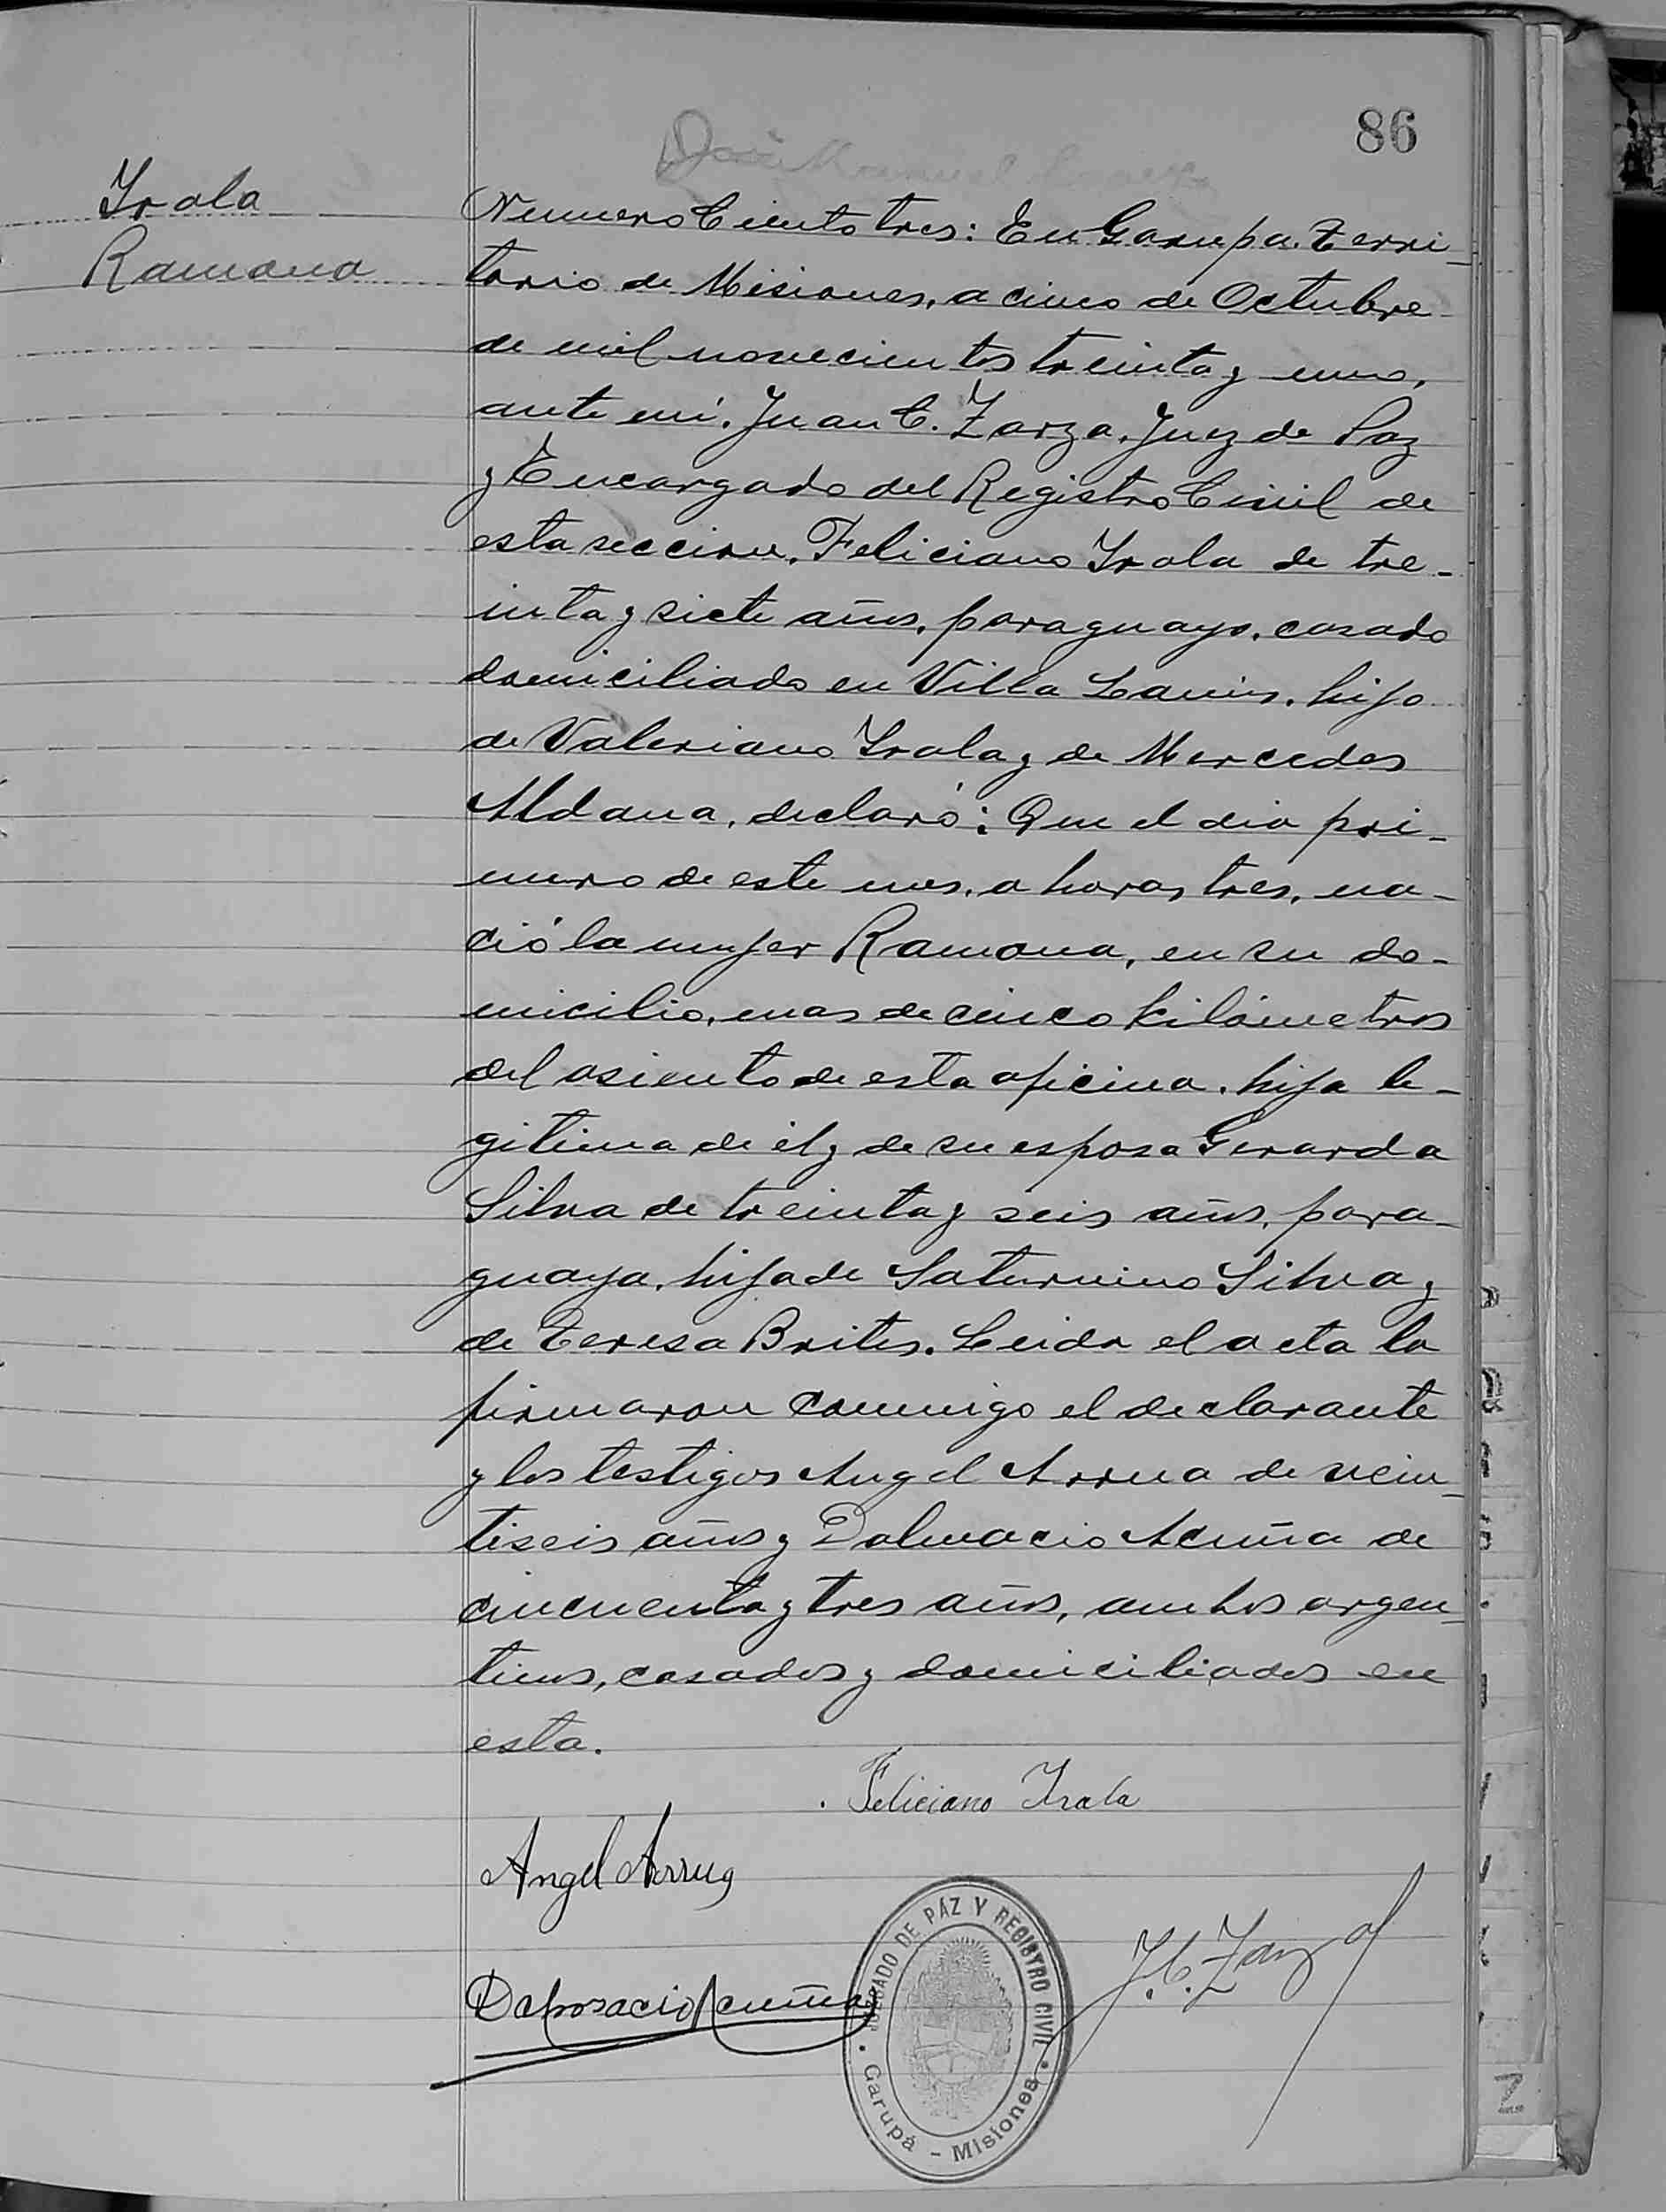 86
Irala
Ramona
Numero Ciento tres: En Garupa. Terri-
torio de Misiones, a cinco de Octubre
de mil novecientos treinta y uno,
ante mí. Juan C. Zarza. Juez de Paz
y Encargado del Registro Civil de
esta seccion. Feliciano Irala de tre-
inta y siete años, paraguayo, casado
domiciliado en Villa Lanús. hijo
de Valeriano Irala y de Mercedes
Aldana, declaró: Que el dia pri-
mero de este mes, a horas tres, na-
ció la mujer Ramona, en su do-
micilio, mas de cinco kilómetros
del asiento de esta oficina. hija le-
gitima de él y de su esposa Gerarda
Silva de treinta y seis años, para-
guaya, hija de Saturnino Silva y
de Teresa Brites. Leida el acta la
firmaron conmigo el declarante
y los testigos Angel Arrua de vein-
tiseis años y Dalmacio Acuña de
cincuenta y tres años, ambos argen-
tinos, casados y domiciliados en
esta.
Feliciano Irala
Angel Arrua
Dalmacio Acuña
J. C. Zarza
JUZGADO DE PAZ Y REGISTRO CIVIL
Garupá - Misiones